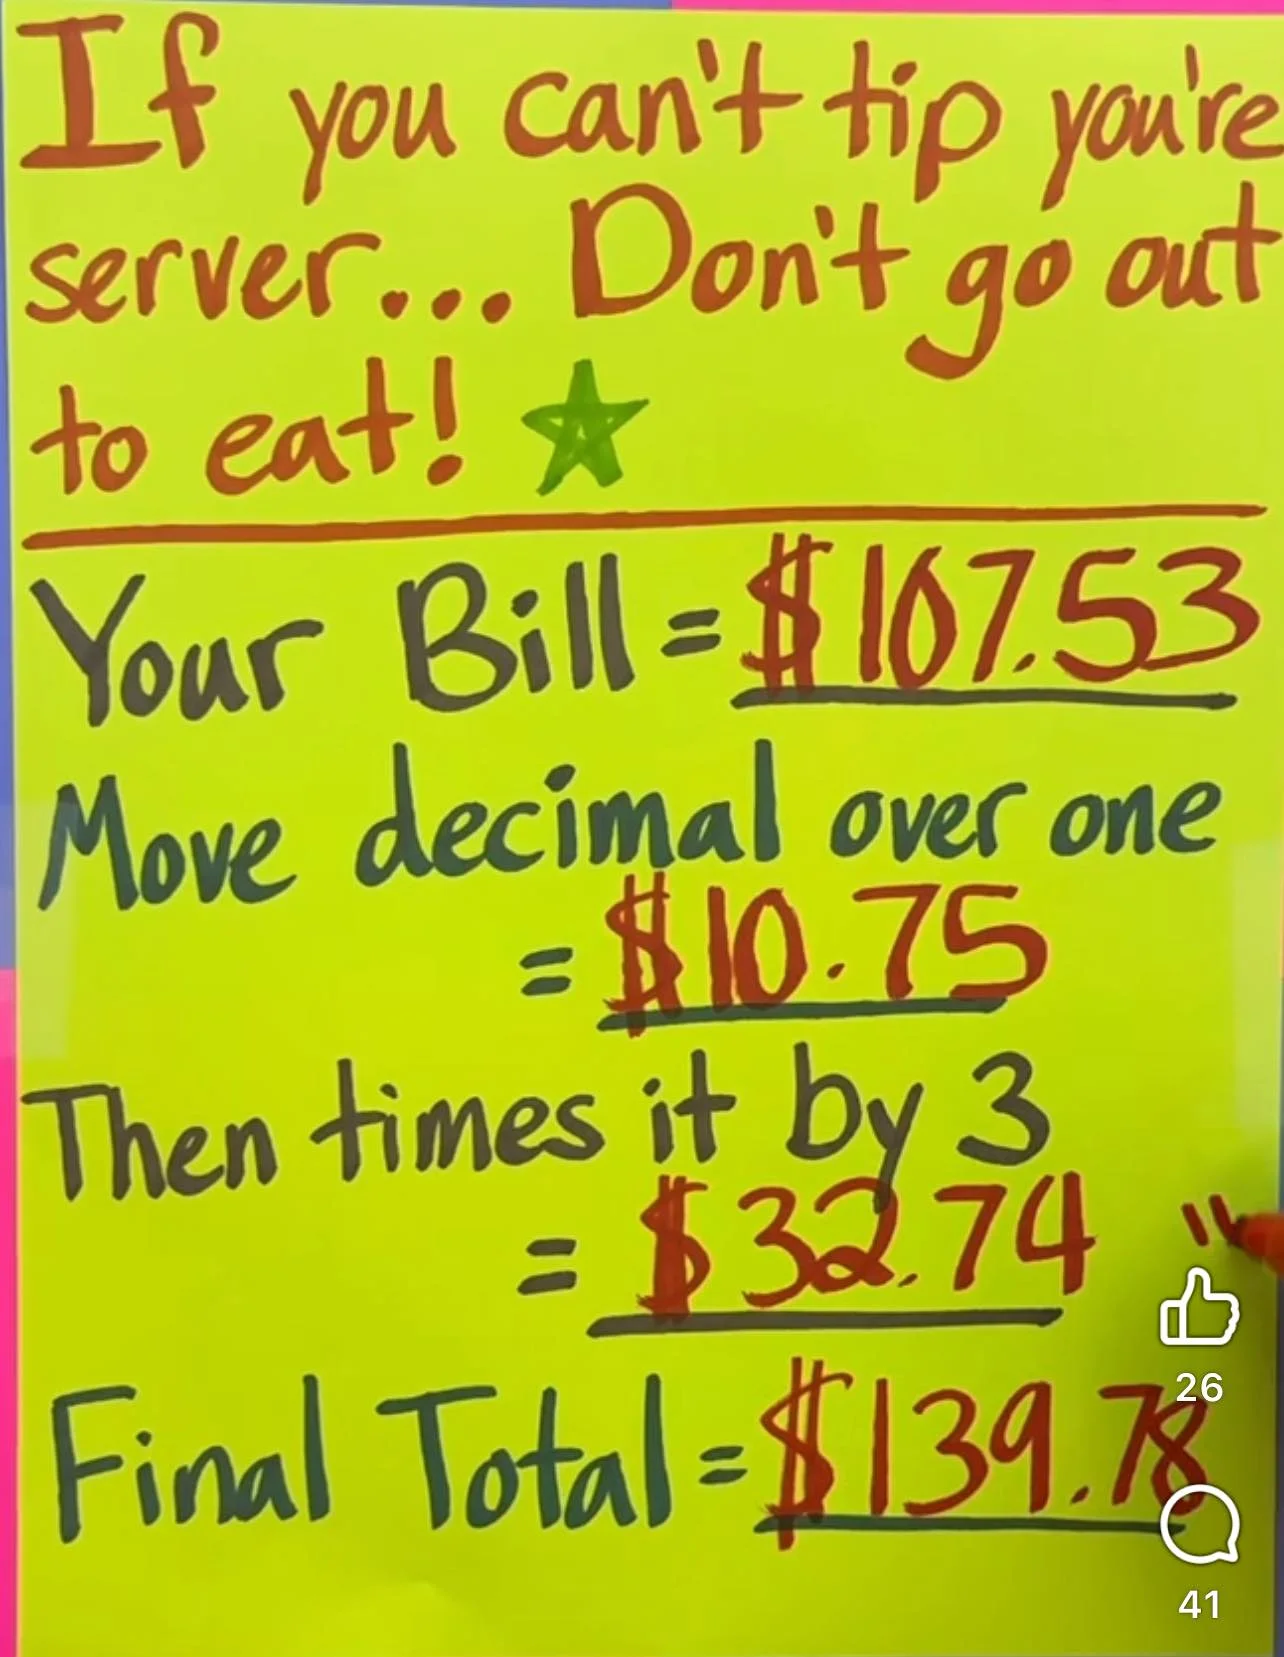 If you can't tip you're
server... Don't go out
to eat!
Your Bill = $107.53
Move decimal over one
= $10.75
Then times it by 3
= $32.74
Final Total = $139.78
26
41